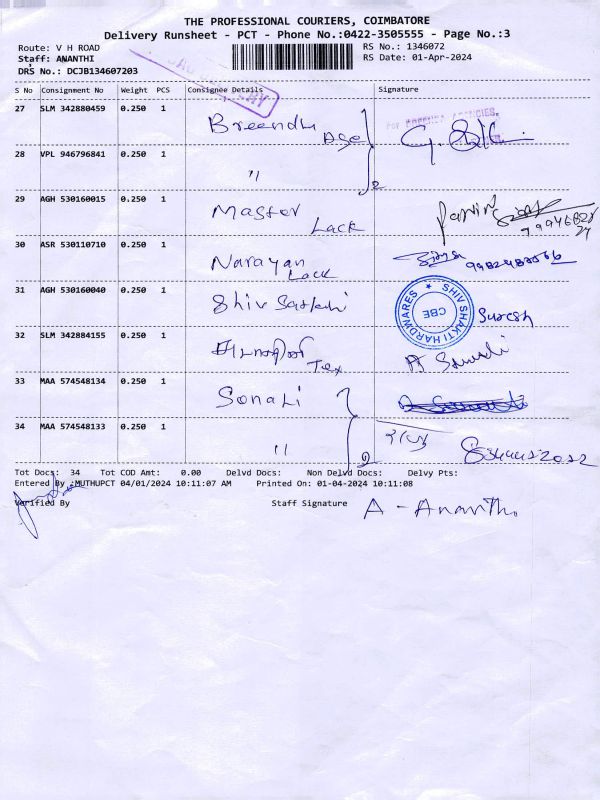 THE PROFESSIONAL COURIERS, COIMBATORE
Delivery Runsheet - PCT - Phone No.:0422-3505555 - Page No.:3
Route: V H ROAD RS No.: 1346072
Staff: ANANTHI RS Date: 01-Apr-2024
DRS No.: DCJB134607203
S No Consignment No Weight PCS Consignee Details Signature
27 SLM 342880459 0.250 1 Age
28 VPL 946796841 0.250 1 " 2
29 AGH 530160015 0.250 1 Master Lack
30 ASR 530110710 0.250 1 Narayan Lack
31 AGH 530160040 0.250 1 Shiv Sakthi SHIV SHAKTI HARDWARES CBE Suresh
32 SLM 342884155 0.250 1 Tex
33 MAA 574548134 0.250 1 Sonali
34 MAA 574548133 0.250 1 " 2
Tot Docs: 34 Tot COD Amt: 0.00 Delvd Docs: Non Delvd Docs: Delvy Pts:
Entered By :MUTHUPCT 04/01/2024 10:11:07 AM Printed On: 01-04-2024 10:11:08
Verified By Staff Signature A - Ananthi